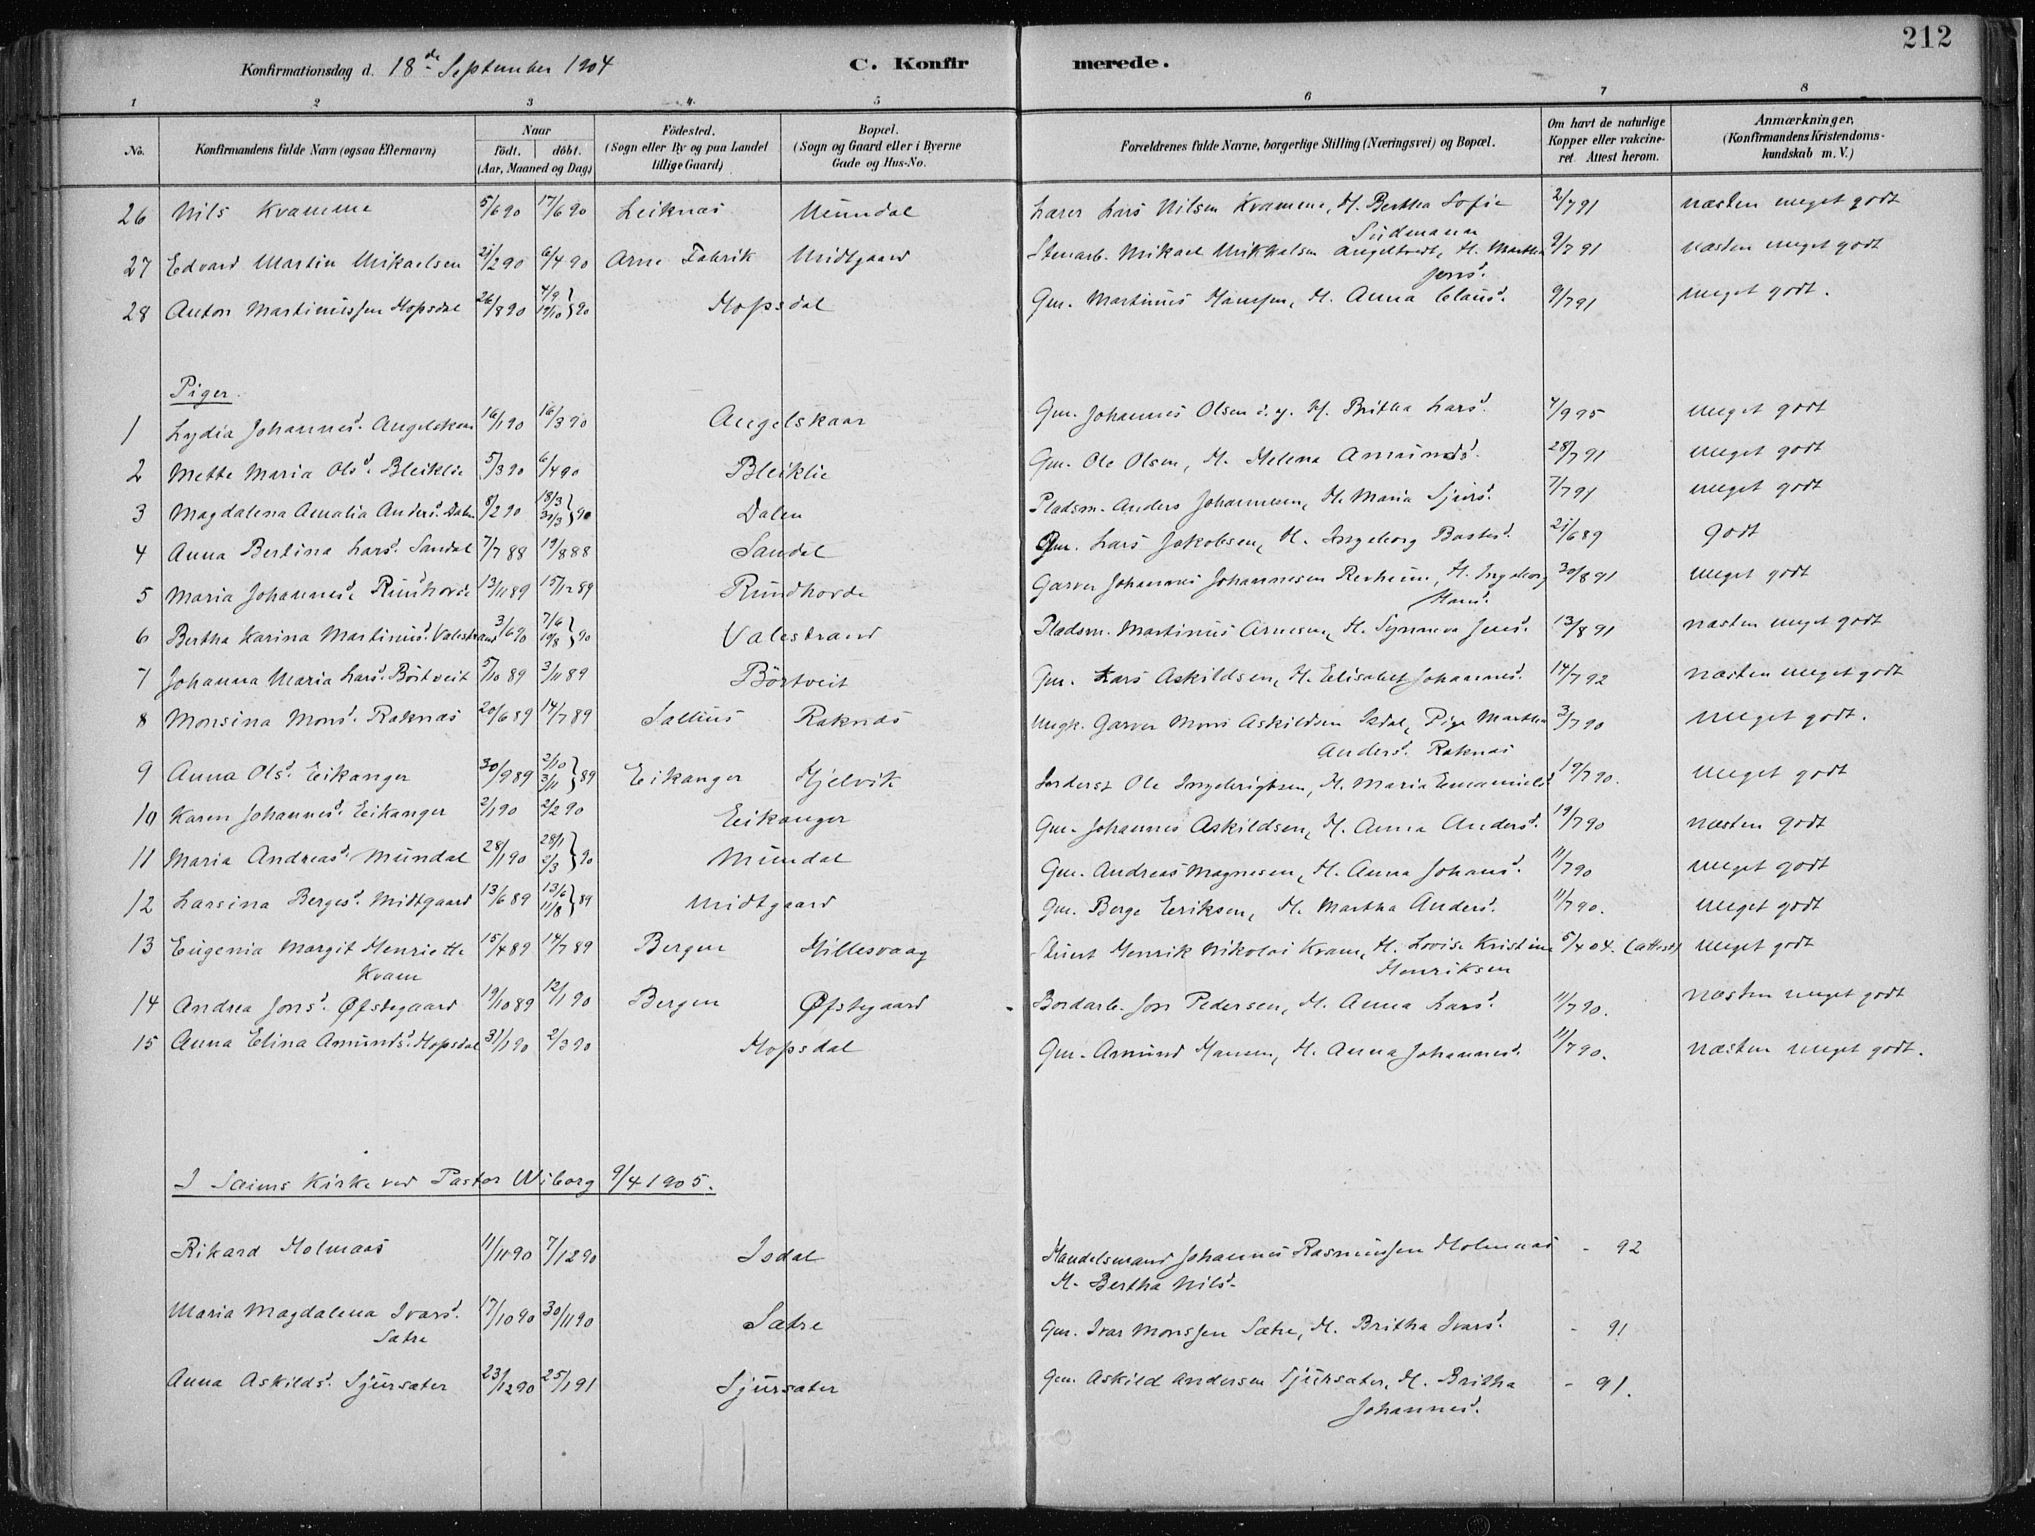 212
Konfirmationsdag d. 18de September 1904 C. Konfirmerede.
1 2 3 4 5 6 7 8
No. Konfirmandens fulde Navn (ogsaa Efternavn) Naar födt. döbt. (Aar, Maaned og Dag) Födested. (Sogn eller By og paa Landet tillige Gaard) Bopæl. (Sogn og Gaard eller i Byerne Gade og Hus-No. Forældrenes fulde Navne, borgerlige Stilling (Næringsvei) og Bopæl. Om havt de naturlige Kopper eller vakcineret Attest herom. Anmærkninger, (Konfirmandens Kristendomskundskab m. V.)
26 Nils Kvamme 5/6 90 17/6 90 Leiknas Mundal Lærer Lars Nilsen Kvamme, H. Bertha Sofie Südmann 2/7 91 næsten meget godt
27 Edvard Martin Mikaelsen 21/2 90 6/4 90 Arne Fabrik Midtgaard Stenarb. Mikael Mikkalsen Angeltvedt, H. Martha Jens d. 9/7 91 næsten meget godt
28 Anton Martinussen Hopsdal 26/8 90 4/9 19/10 } 90 Hopsdal Gm. Martinus Hansen, H. Anna Claus d. 9/7 91 meget godt.
Piger.
1 Lydia Johannesd. Angelskaar 16/1 90 16/3 90 Angelskaar Gm. Johannes Olsen d. y. H. Britha Larsd. 4/9 95 meget godt
2 Mette Maria Olsd. Bleiklie 5/3 90 6/4 90 Bleiklie Gm. Ole Olsen, H. Helena Amundsd. 28/7 91 meget godt
3 Magdalena Amalia Andersd. Dalen 8/2 90 18/3 30/3 } 90 Dalen Pladsm. Anders Johannesen, H. Maria Sjursd. 7/7 91 meget godt
4 Anna Bertina Larsd. Sandal 7/7 88 19/8 88 Sandal Gm. Lars Jakobsen, H. Ingeborg Bastesd. 21/6 89 godt
5 Maria Johannesd. Rundhovde 13/11 89 15/12 89 Rundhovde Garver Johannes Johannesen Revheim, H. Ingeborg Hansd. 30/8 91 meget godt
6 Bertha Karina Martinusd. Valestrand 3/6 90 7/6 10/8 } 90 Valestrand Pladsm. Martinus Arnesen, H. Synneva Jensd. 13/8 91 næsten meget godt
7 Johanna Maria Larsd. Börtveit 5/10 89 3/11 89 Börtveit Gm. Lars Askildsen, H. Elisabet Johannesd. 14/7 92 næsten meget godt
8 Monsina Monsd. Raknas 20/6 89 14/7 89 Salhus Raknas Ungk. Garver Mons Askildsen Isdal, Pige Martha Andersd. Raknas 3/7 90 meget godt.
9 Anna Olsd. Eikanger 30/9 89 2/10 3/11 } 89 Eikanger Hjelvik Inderst Ole Ingebrigtsen, H. Maria Emanuelsd. 19/7 90. meget godt
10 Karen Johannesd. Eikanger 2/1 90 2/2 90 Eikanger Gm. Johannes Askildsen, H. Anna Andersd. 19/7 90 næsten godt
11 Maria Andreasd. Mundal 28/1 90 28/1 2/3 } 90 Mundal Gm. Andreas Magnesen, H. Anna Johansd. 11/7 90 meget godt
12 Larsina Bergesd. Midtgaard 13/6 89 13/6 11/8 } 89 Midtgaard Gm. Berge Eriksen, H. Martha Andersd. 11/7 90. meget godt
13 Eugenia Margit Henriette Kvam 15/4 89 14/7 89 Bergen Hillesvaag Stuert Henrik Nikolai Kvam, H. Lovise Kristine Henriksen 5/4 04. (attest) meget godt
14 Andrea Jonsd. Øfstegaard 19/10 89 12/1 90 Bergen Øfstegaard Bordarb. Jon Pedersen, H. Anna Larsd. 11/7 90. næsten meget godt
15 Anna Elina Amundsd. Hopsdal 31/1 90 2/3 90 Hopsdal Gm. Amund Hansen, H. Anna Johannesd. 11/7 90. næsten meget godt.
I Sæims Kirke ved Pastor Wiborg 9/4 1905.
Rikard Holmaas 11/11 90 7/12 90 Isdal Handelsmand Johannes Rasmussen Holmaas - 92
H. Bertha Nilsd.
Maria Magdalena Ivarsd. Sætre 17/10 90 30/11 90 Sætre Gm. Ivar Monssen Sætre, H. Britha Ivarsd. - 91
Anna Askildsd. Sjursæter 23/12 90 25/1 91 Sjursæter Gm. Askild Andersen Sjursæter, H. Britha Johannesd. - 91.